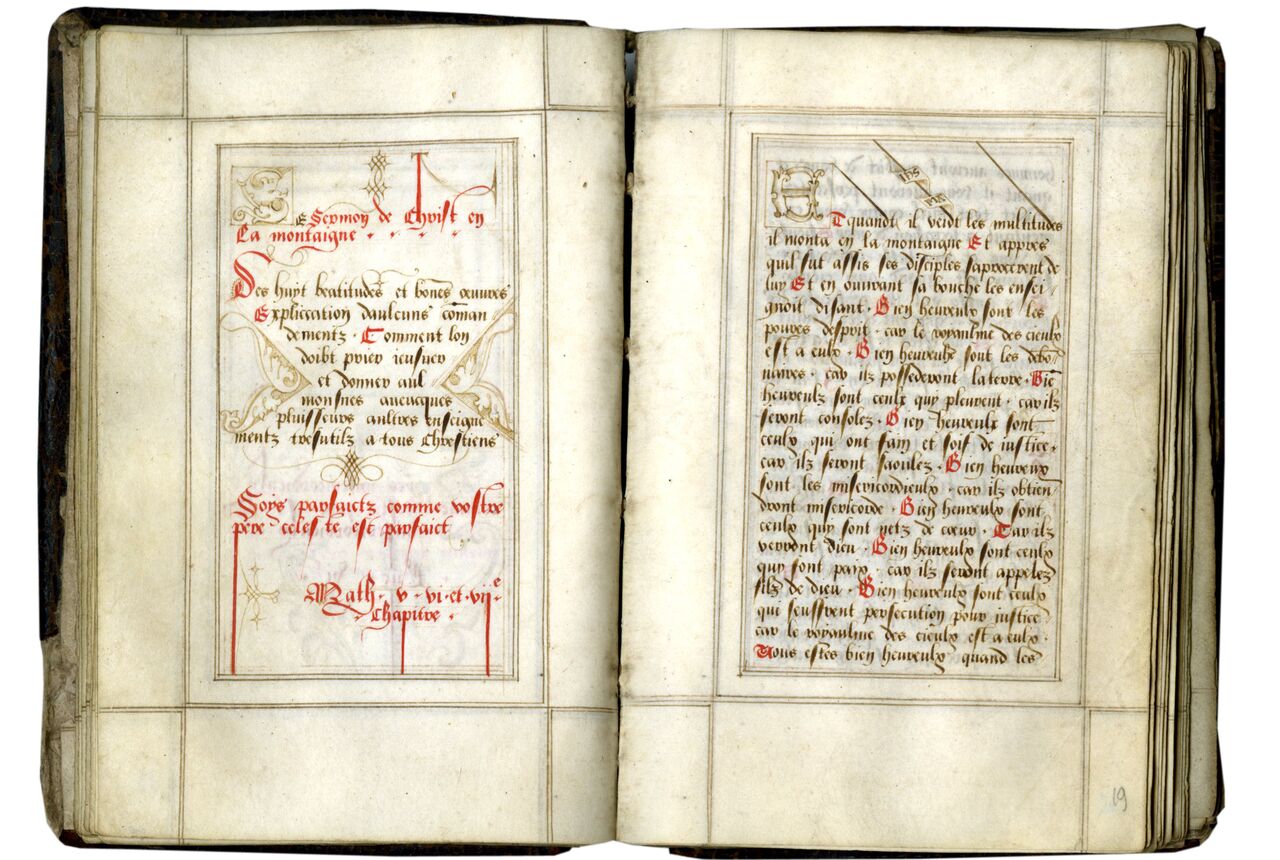 LE Sermon de Christ en
La montaigne
Des huyt beatitudes et bones œuures
Expliccation daulcuns coman
dementz · Comment lon
doibt prier ieusner
et donner aul
mosnes auecques
pluisseurs aultres enseigne
mentz tresutilz a tous Chrestiens
Soys parfaictz comme vostre
pere celeste est parfaict
Math · v · vi · et · vii e ·
Chapitre ·
ihs
ma
ET quandt il veidt les multitudes
il monta en la montaigne Et appres
quil fut assis ses disciples saprocerent de
luy Et en ouurant sa bouche les ensei
gnoit disant · Bien heureulx sont les
poures desprit · car le royaulme des cieulx
est a eulx · Bien heureulx sont les debo
naires · car ilz possederont la terre · Bie
heureulx sont ceulx quy pleurent · car ilz
seront consolez · Bien heureulx sont
ceulx qui ont fain et soif de iustice ·
car ilz seront saoulez · Bien heureux
sont les misericordieulx · car ilz obtien
dront misericorde · Bien heureulx sont
ceulx quy sont netz de cœur · Car ilz
verront dieu · Bien heureulx sont ceulx
quy font paix · car ilz seront appelez
filz de dieu · Bien heureulx sont ceulx
qui seuffrent persecution pour iustice
car le royaulme des cieulx est a eulx ·
Vous estes bien heureulx quand les
19